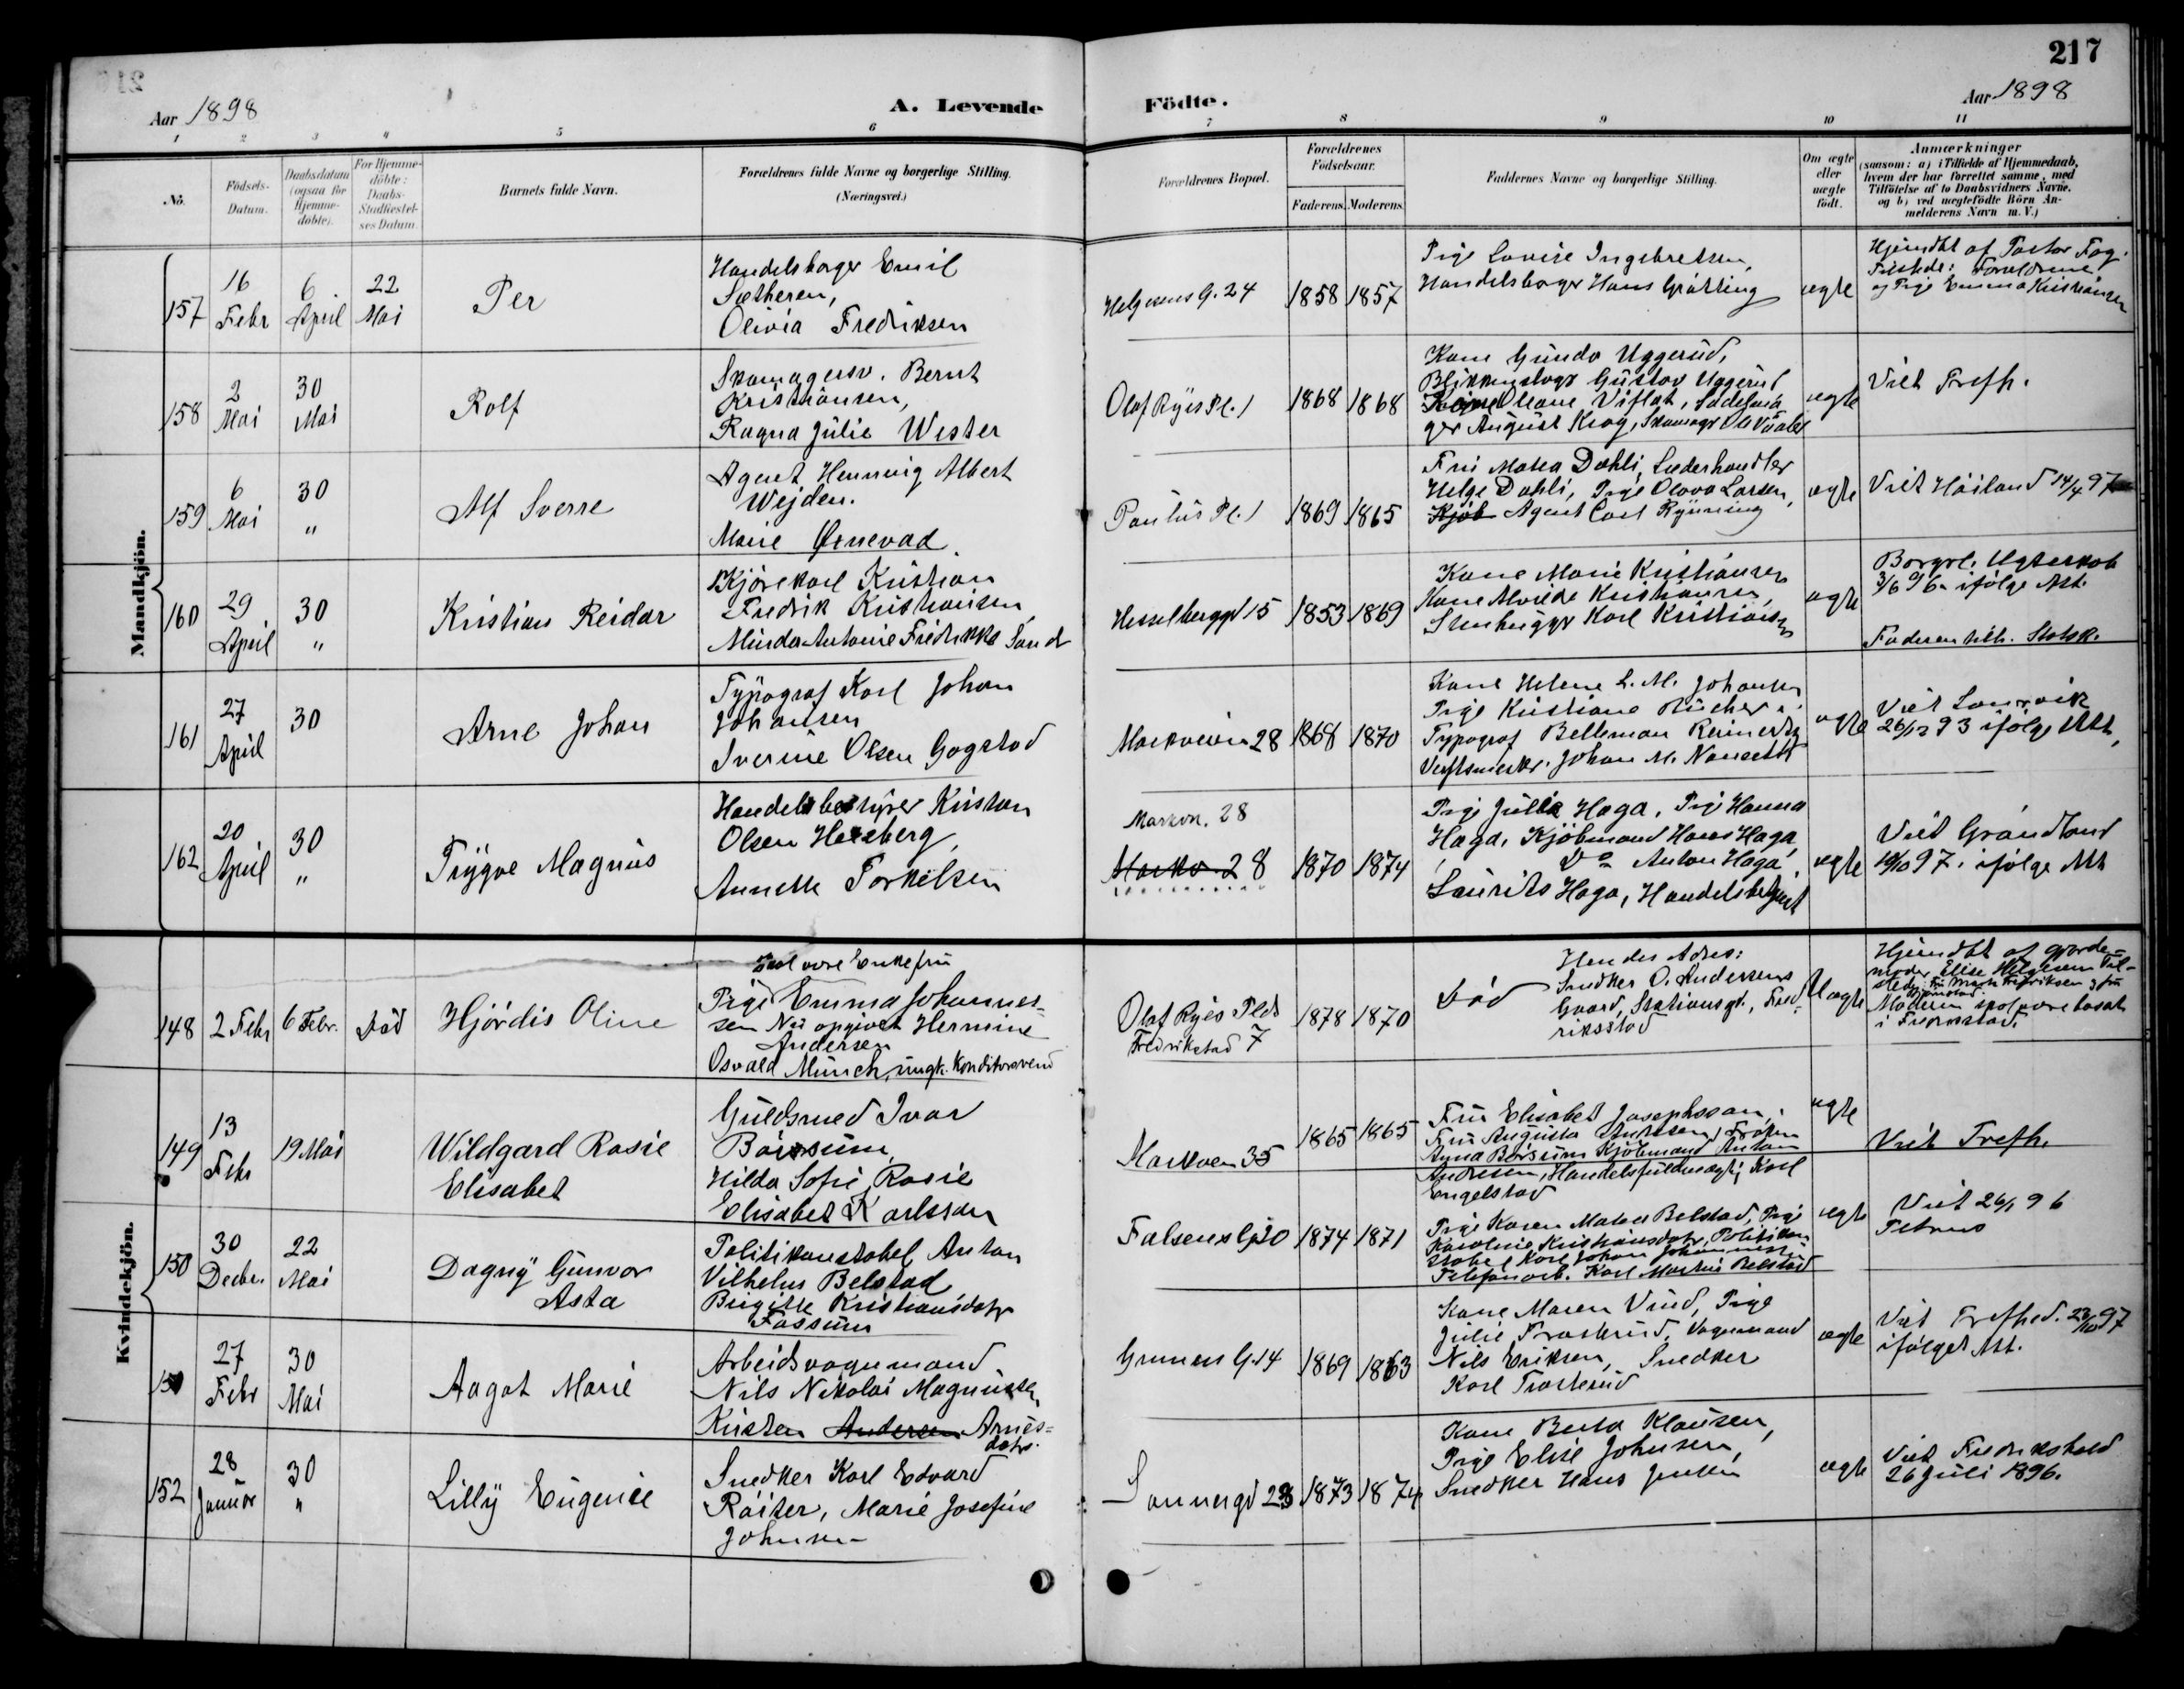 217
Aar 1898
A. Levende
Födte.
Aar 1898
1 2 3 4 5 6 7 8 9 10 11
No.
Födsels-
Datum.
Daabsdatum
(ogsaa for
Hjemme-
döbte).
For Hjemme-
döbte:
Daabs-
Stadfæstel-
ses Datum.
Barnets fulde Navn.
Forældrenes fulde Navne og borgerlige Stilling.
(Næringsvei.)
Forældrenes Bopæl.
Forældrenes
Födselsaar.
Faderens. Moderens.
Faddernes Navne og borgerlige Stilling.
Om ægte
eller
uægte
födt.
Anmærkninger
(saasom: a) i Tilfælde af Hjemmedaab,
hvem der har forrettet samme, med
Tilföielse af to Daabsvidners Navne.
og b) ved uægtefödte Börn An-
melderens Navn m. V.)
Mandkjön.
157
16
Febr
6
April
22
Mai
Per
Handelsborger Emil
Sætheren,
Olivia Fredriksen
Helgesens G. 24
1858 1857
Pige Lovise Ingebretsen,
Handelsborger Hans Grötting
ægte
Hjemdbt af Pastor Fog.
Tilstede: Forældrene
og Pige Emma Kristiansen
158
2
Mai
30
Mai
Rolf
Skomagersv. Bernt
Kristiansen,
Ragna Julie Wester
Olaf Ryes Pl. 1
1868 1868
Kone Gunda Uggerud,
Gustav Uggerud
Oleane Viflat, Sadelma
ger August Krog, Skomagr Ole
ægte
Viet Trefh.
159
6
Mai
30
"
Alf Sverre
Agent Hennvig Albert
Wejden.
Marie Ørnevad
Paulus Pl. 1
1869 1865
Fru Matea Dahli, Læderhandler
Helge Dahli, Pige Olava Larsen,
Kjöb Agent Carl Ryüning
ægte
Viet Höiland 14/4 97
160
29
April
30
"
Kristian Reidar
Kjörekarl Kristian
Fredrik Kristiansen,
Minda Antonie Fredrikke Sand
Hesselberggd 15
1853 1869
Kone Marie Kristiansen
Kone Alvilde Kristiansen,
Stenhugger Karl Kristiansen
ægte
Borgerl. Ægteskab
3/6 96 ifölge Att.
Faderen tilh. Statsk.
161
27
April
30
Arne Johan
Typograf Karl Johan
Johansen
Iverine Olsen Gogstad
Markveien 28
1868 1870
Kone Helene L. M. Johansen
Pige Kristiane Bücher
Typograf Bellman
Johan M.
ægte
Viet Laurvik
26/12 93 ifölge Att,
162
20
April
30
"
Trygve Magnus
Handelsbestyrer Kristian
Olsen Hexeberg,
Annette Torkelsen
Markvn. 28
Markv 28
1870 1874
Pige Julia Haga, Pige Hanna
Haga, Kjöbmand Hans Haga,
Do Anton Haga,
Laurits Haga, Handelsbetjent
ægte
Viet Grandland
10/10 97. ifölge Att
Kvindekjön.
148
2 Febr
6 Febr.
Död
Hjördis Oline
Skal være Enkefru
Pige Emma Johannes-
sen Nu opgivet Hermine
Andersen
Osvald Münch, ungk. Konditorsvend
Olaf Ryes Plds
Fredrikstad 7
1878 1870
Död
Hendes Adres:
Snedker O. Andersens
Gaard, Stationsgt., Fred-
riksstad
Uægte
Hjemdbt af gjorde-
moder Elise Helgesen Til-
stede: Fru Marth Fredriksen & fru
Moderen skal være bosat
i Fredrikstad.
149
13
Febr
19 Mai
Wildgard Rosie
Elisabet
Guldsmed Ivar
Börsum,
Hilda Sofie Rosie
Elisabet Karlsson
Markveien 35
1865 1865
Fru Elisabet Josephsson,
Fru Augusta Andresen, Fröken
Anna Börsum Kjöbmand Anton
Andresen, Handelsfuldmægtig Karl
Engelstad
ægte
Viet Trefh.
150
30
Decbr.
22
Mai
Dagny Gunvor
Asta
Politikonstabel Anton
Vilhelm Belstad
Birgitte Kristiansdatter
Fossum
Falsens G. 20
1874 1871
Pige Karen Matea Belstad, Pige
Karoline Kristiansdatr, Politikon
stabel Karl Johan Johannesen
Telefonarb. Karl Martin Belstad
ægte
Viet 26/1 96
Petrus
151
27
Febr
30
Mai
Aagot Marie
Arbeidsvognmand
Nils Nikolai Magnussen
Kristen Andersen Arnes-
datr.
Grünners G. 14
1869 1863
Kone Maren Vind, Pige
Julie Trosterud, Vognmand
Nils Eriksen, Snedker
Karl Trosterud
ægte
Viet Trefhed. 23/10 97
ifölge Att.
152
28
Januar
30
"
Lilly Eugenie
Snedker Karl Edvard
Röiter, Marie Josefine
Johnsen
Sannergd 23
1873 1874
Kone Berta Klausen,
Pige Elise Johnsen,
Snedker Hans Jensen
ægte
Viet Fredrikshald
26 Juli 1896.